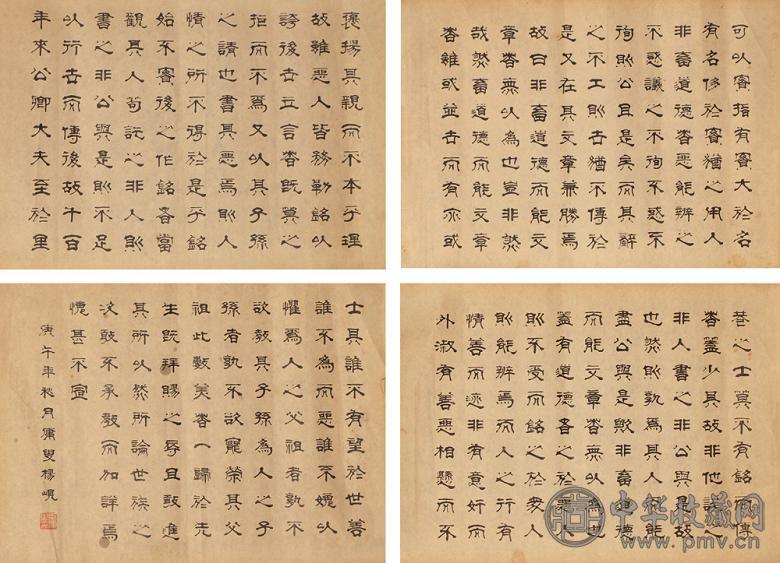 褒揚其親而不本乎理
故雖惡人皆務勒銘以
誇後世立言者既莫之
拒而不為又以其子孫
之請也書其惡焉則人
情之所不得於是乎銘
始不實後之作銘者當
觀其人苟託之非人則
書之非公與是則不足
以行世而傳後故千百
年來公卿大夫至於里
巷之士莫不有銘而傳
者蓋少其故非他託之
非人書之非公與是故
也然則孰為其人而能
盡公與是歟非畜道德
而能文章者無以為也
蓋有道德者之於惡人
則不受而銘之於眾人
則能辨焉而人之行有
情善而迹非有意奸而
外淑有善惡相懸而不
可以實指有實大於名
有名侈於實猶之用人
非畜道德者惡能辨之
不惑議之不徇不惑不
徇則公且是矣而其辭
之不工則世猶不傳於
是又在其文章兼勝焉
故曰非畜道德而能文
章者無以為也豈非然
哉然畜道德而能文章
者雖或並世而有亦或
士其誰不有望於世善
誰不為而惡誰不媿以
懼焉人之父祖者孰不
欲教其子孫為人之子
孫者孰不欲寵榮其父
祖此數美者一歸於先
生既拜賜之辱且敢進
其所以然所論世族之
次敢不承教而加詳焉
愧甚不宣
庚午年秋月庸叟楊峴
中华收藏网
www.pmv.cn